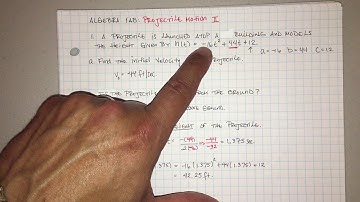 ALGEBRA LAB: PROJECTILE MOTION II
1. A PROJECTILE IS LAUNCHED ATOP A BUILDING AND MODELS
THE HEIGHT GIVEN BY h(t) = -16t² + 44t + 12.
a = -16 b = 44 C = 12
a. FIND THE INITIAL VELOCITY PROJECTILE.
V₀ = 44 ft/sec
THE PROJECTILE FROM THE GROUND?
OF THE PROJECTILE.
= -(44) / 2(-16) = -44 / -32 = 1.375 sec
.375) = -16(1.375)² + 44(1.375) + 12
= 42.25 ft.